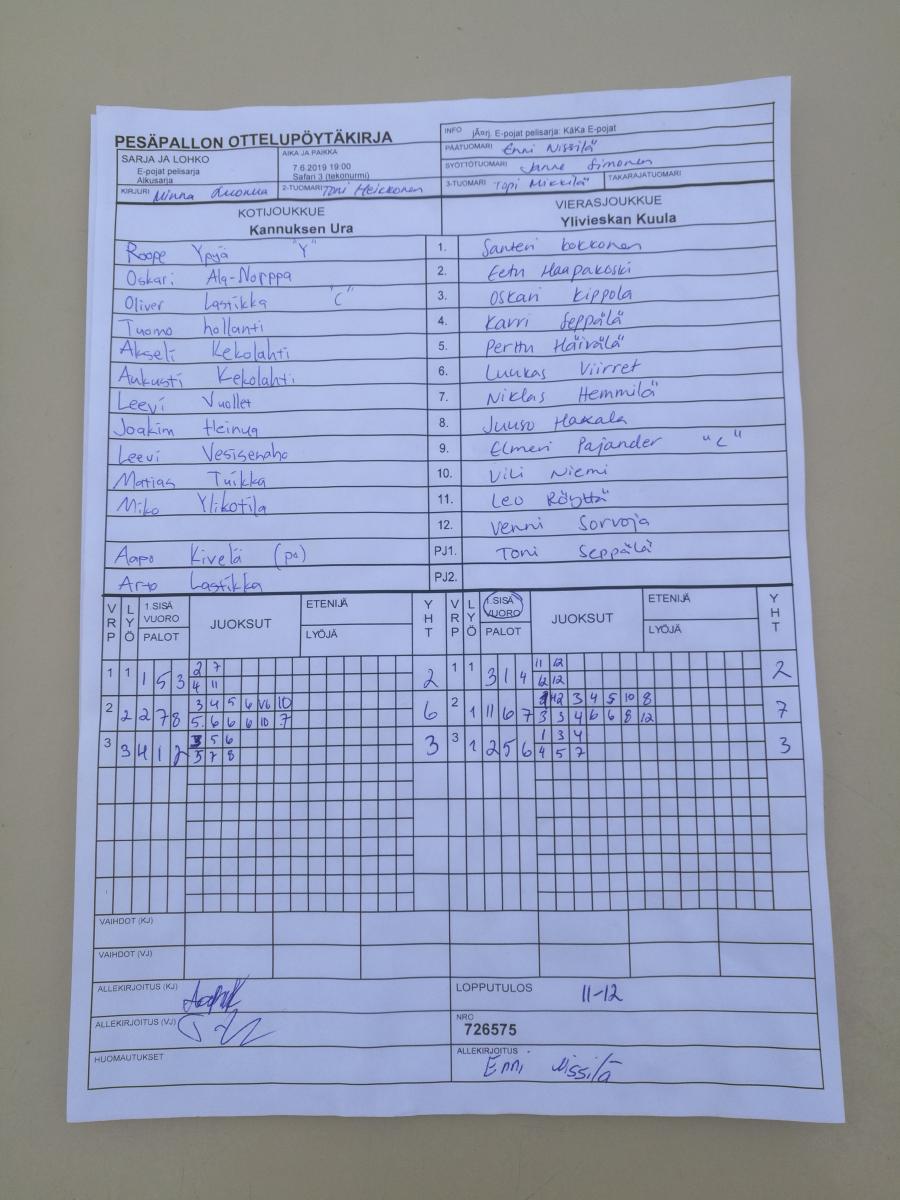 PESÄPALLON OTTELUPÖYTÄKIRJA
INFO jÄ¤rj. E-pojat pelisarja: KäKa E-pojat
PÄÄTUOMARI Enni Nissilä
SYÖTTÖTUOMARI Janne Simonen
3-TUOMARI Topi Mikkilä TAKARAJATUOMARI
SARJA JA LOHKO
E-pojat pelisarja
Alkusarja
AIKA JA PAIKKA
7.6.2019 19:00
Safari 3 (tekonurmi)
KIRJURI Minna 2-TUOMARI Toni Heikkonen
KOTIJOUKKUE
Kannuksen Ura
VIERASJOUKKUE
Ylivieskan Kuula
Roope Ypyä "Y" 1. Santeri Kokkonen
Oskari Ala-Norppa 2. Eetu Haapakoski
Oliver Lastikka "C" 3. Oskari Kippola
Tuomo hollanti 4. Karri Seppälä
Akseli Kekolahti 5. Perttu Häivälä
Aukusti Kekolahti 6. Luukas Viirret
Leevi Vuollet 7. Niklas Hemmilä
Joakim Heinua 8. Juuso Hakala
Leevi Vesisenaho 9. Elmeri Pajander "C"
Matias Tuikka 10. Vili Niemi
Miko Ylikotila 11. Leo Röyttä
12. Venni Sorvoja
Aapo Kivelä (pa) PJ1. Toni Seppälä
Arto Lastikka PJ2.
VRP LYÖ 1.SISÄ VUORO PALOT JUOKSUT ETENIJÄ LYÖJÄ YHT VRP LYÖ 1.SISÄ VUORO PALOT JUOKSUT ETENIJÄ LYÖJÄ YHT
1 1 1 5 3 2 7 2 1 1 3 1 4 11 12 2
4 11 12 12
2 2 2 7 8 3 4 5 6 10 6 2 1 11 6 7 12 3 4 5 10 8 7
5 6 6 6 10 7 3 3 4 6 6 8 12
3 3 4 1 2 3 5 6 3 3 1 2 5 6 1 3 4 3
5 7 8 4 5 7
VAIHDOT (KJ)
VAIHDOT (VJ)
ALLEKIRJOITUS (KJ) LOPPUTULOS 11-12
ALLEKIRJOITUS (VJ) NRO
726575
HUOMAUTUKSET ALLEKIRJOITUS
Enni Nissilä